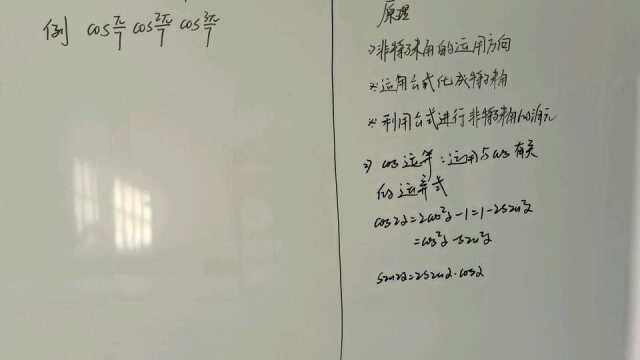 例 cos π/7 cos 2π/7 cos 3π/7
原理
1) 非特殊角的运用方向
※运用公式化成特殊角
※利用公式进行非特殊角的消元
2) cos运算:运用与cos有关
的运算式
cos2α=2cos²α-1=1-2sin²α
=cos²α-sin²α
sin2α=2sinα·cosα